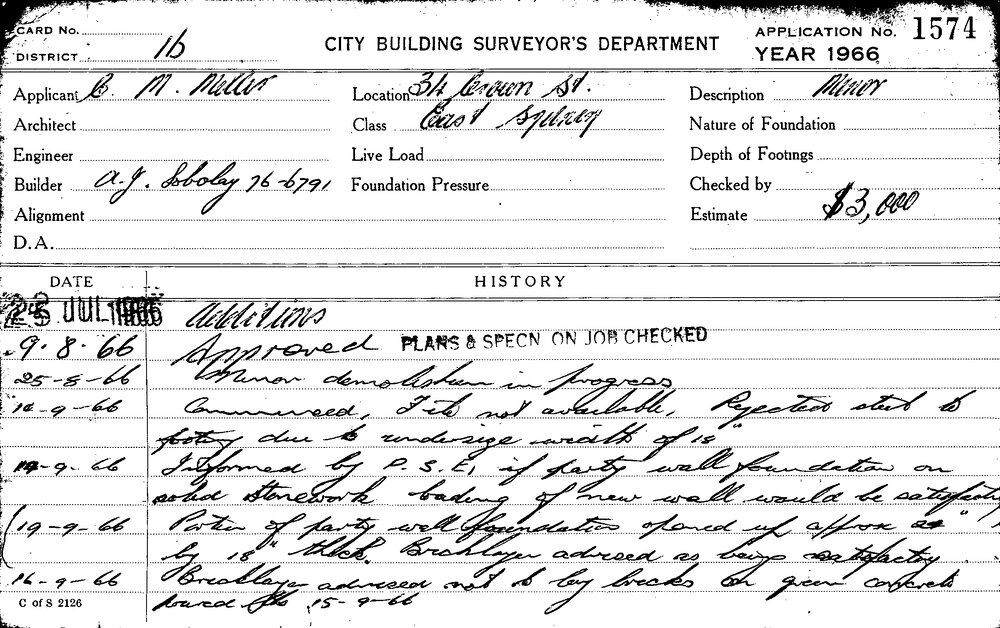 CARD No.
DISTRICT 1b
CITY BUILDING SURVEYOR'S DEPARTMENT
APPLICATION No. 1574
YEAR 1966
Applicant M. Meller
Location 34 Crown St.
Description Minor
Architect
Class East Sydney
Nature of Foundation
Engineer
Live Load
Depth of Footings
Builder A.J. Sobolay 76-6791
Foundation Pressure
Checked by
Alignment
Estimate $3,000
D.A.
DATE HISTORY
25 JUL 1966 Additions
9.8.66 Approved PLANS & SPECN ON JOB CHECKED
25-8-66 Minor demolition in progress
14-9-66 Commenced, File not available, Rejected steel to
footing due to undersize width of 18"
14-9-66 Informed by P.S.E, if party wall foundation on
solid stonework loading of new wall would be satisfactory
19-9-66 Portion of party wall foundation opened up approx
by 18" thick. Bricklayer advised as being satisfactory
16-9-66 Bricklayer advised not to lay bricks on green concrete
poured 15-9-66
C of S 2126